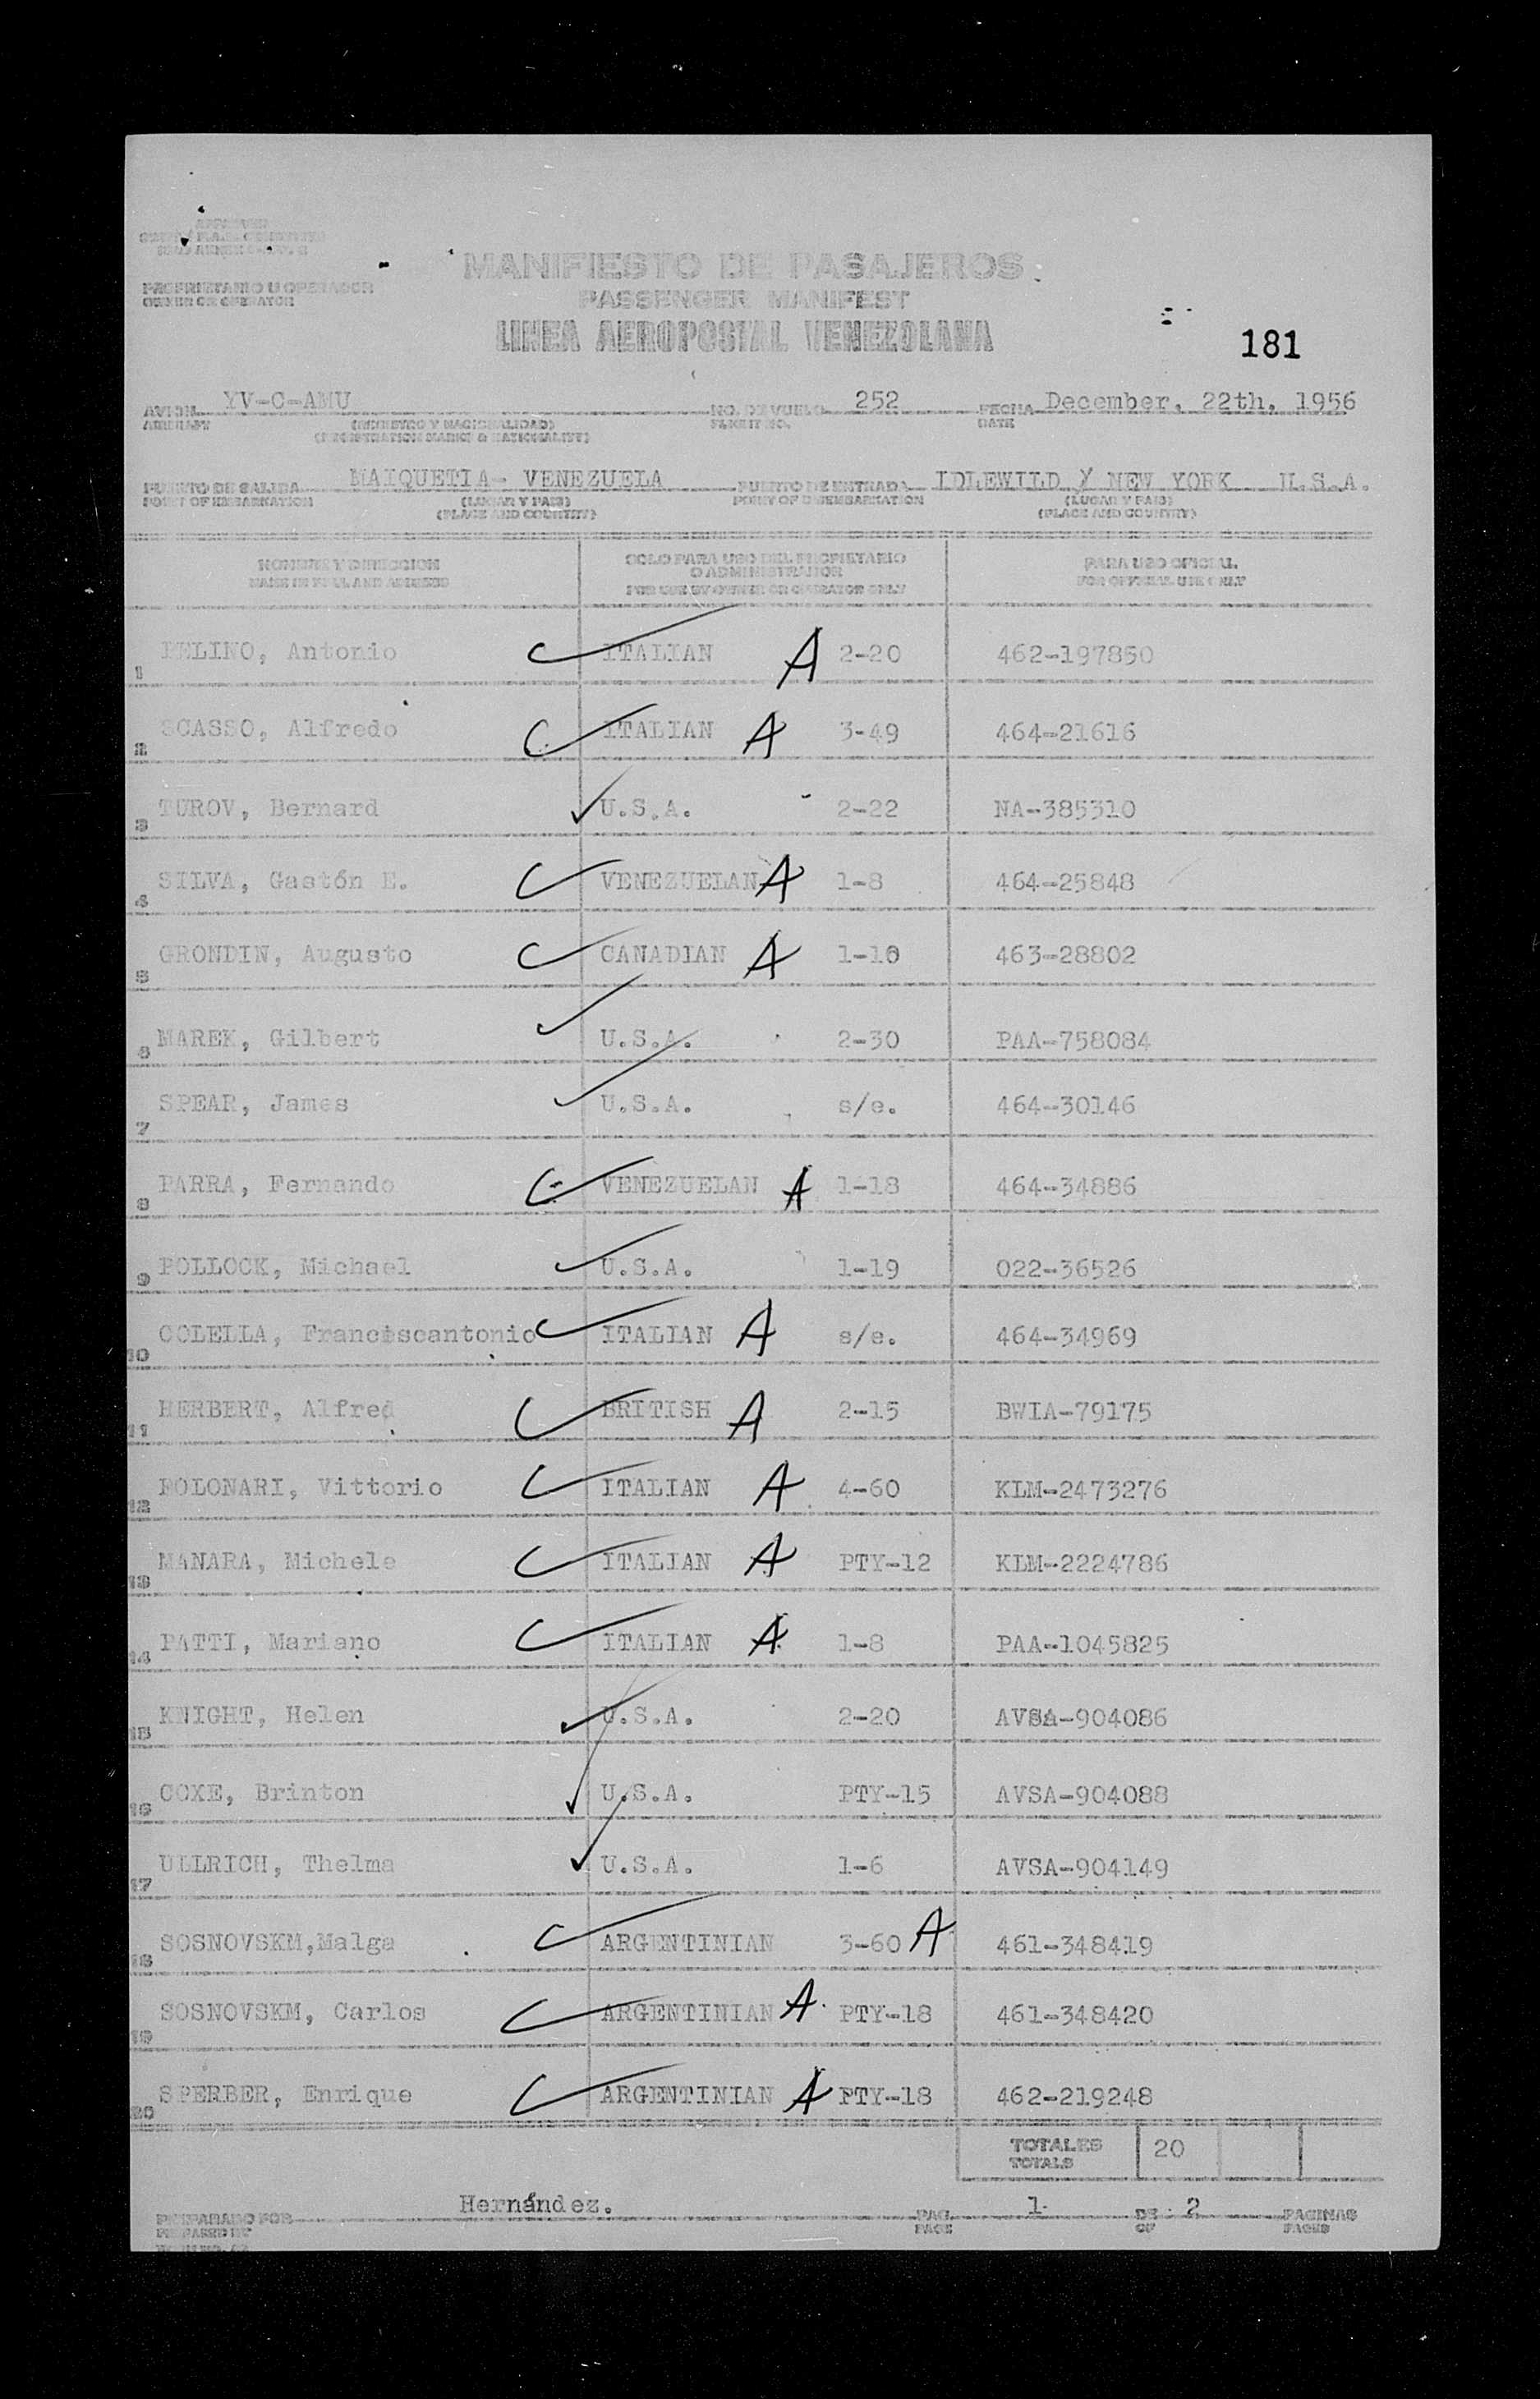 MANIFIESTO DE PASAJEROS
PROPRIETARIO U OPERADOR
OWNER OR OPERATOR
PASSENGER MANIFEST
LINEA AEROPOSTAL VENEZOLANA
181
AVION YV-C-AMU NO. DE VUELO 252 FECHA December, 22th, 1956
AIRCRAFT (REGISTRO Y NACIONALIDAD) FLIGHT NO. DATE
(REGISTRATION MARKS & NATIONALITY)
PUERTO DE SALIDA MAIQUETIA- VENEZUELA PUERTO DE ENTRADA IDLEWILD Y NEW YORK U.S.A.
POINT OF EMBARKATION (LUGAR Y PAIS) POINT OF DISEMBARKATION (LUGAR Y PAIS)
(PLACE AND COUNTRY) (PLACE AND COUNTRY)
NOMBRE Y DIRECCION SOLO PARA USO DEL PROPIETARIO PARA USO OFICIAL
NAME IN FULL AND ADDRESS O ADMINISTRADOR FOR OFFICIAL USE ONLY
FOR USE BY OWNER OR OPERATOR ONLY
1 PELINO, Antonio ITALIAN A 2-20 462-197850
2 SCASSO, Alfredo ITALIAN A 3-49 464-21616
3 TUROV, Bernard U.S.A. 2-22 NA-385310
4 SILVA, Gastón E. VENEZUELAN A 1-8 464-25848
5 GRONDIN, Augusto CANADIAN A 1-10 463-28802
6 MAREK, Gilbert U.S.A. 2-30 PAA-758084
7 SPEAR, James U.S.A. s/e. 464-30146
8 PARRA, Fernando VENEZUELAN A 1-18 464-34886
9 POLLOCK, Michael U.S.A. 1-19 022-36526
10 COLELLA, Franciscantonio ITALIAN A s/e. 464-34969
11 HERBERT, Alfred BRITISH A 2-15 BWIA-79175
12 POLONARI, Vittorio ITALIAN A 4-60 KLM-2473276
13 MANARA, Michele ITALIAN A PTY-12 KLM-2224786
14 PATTI, Mariano ITALIAN A 1-8 PAA-1045825
15 KNIGHT, Helen U.S.A. 2-20 AVSA-904086
16 COXE, Brinton U.S.A. PTY-15 AVSA-904088
17 ULLRICH, Thelma U.S.A. 1-6 AVSA-904149
18 SOSNOVSKM,Malga ARGENTINIAN 3-60 A 461-348419
19 SOSNOVSKM, Carlos ARGENTINIAN A PTY-18 461-348420
20 SPERBER, Enrique ARGENTINIAN A PTY-18 462-219248
TOTALES 20
TOTALS
PREPARADO POR Hernández. PAG. 1 DE 2 PAGINAS
PREPARED BY PAGE OF PAGES